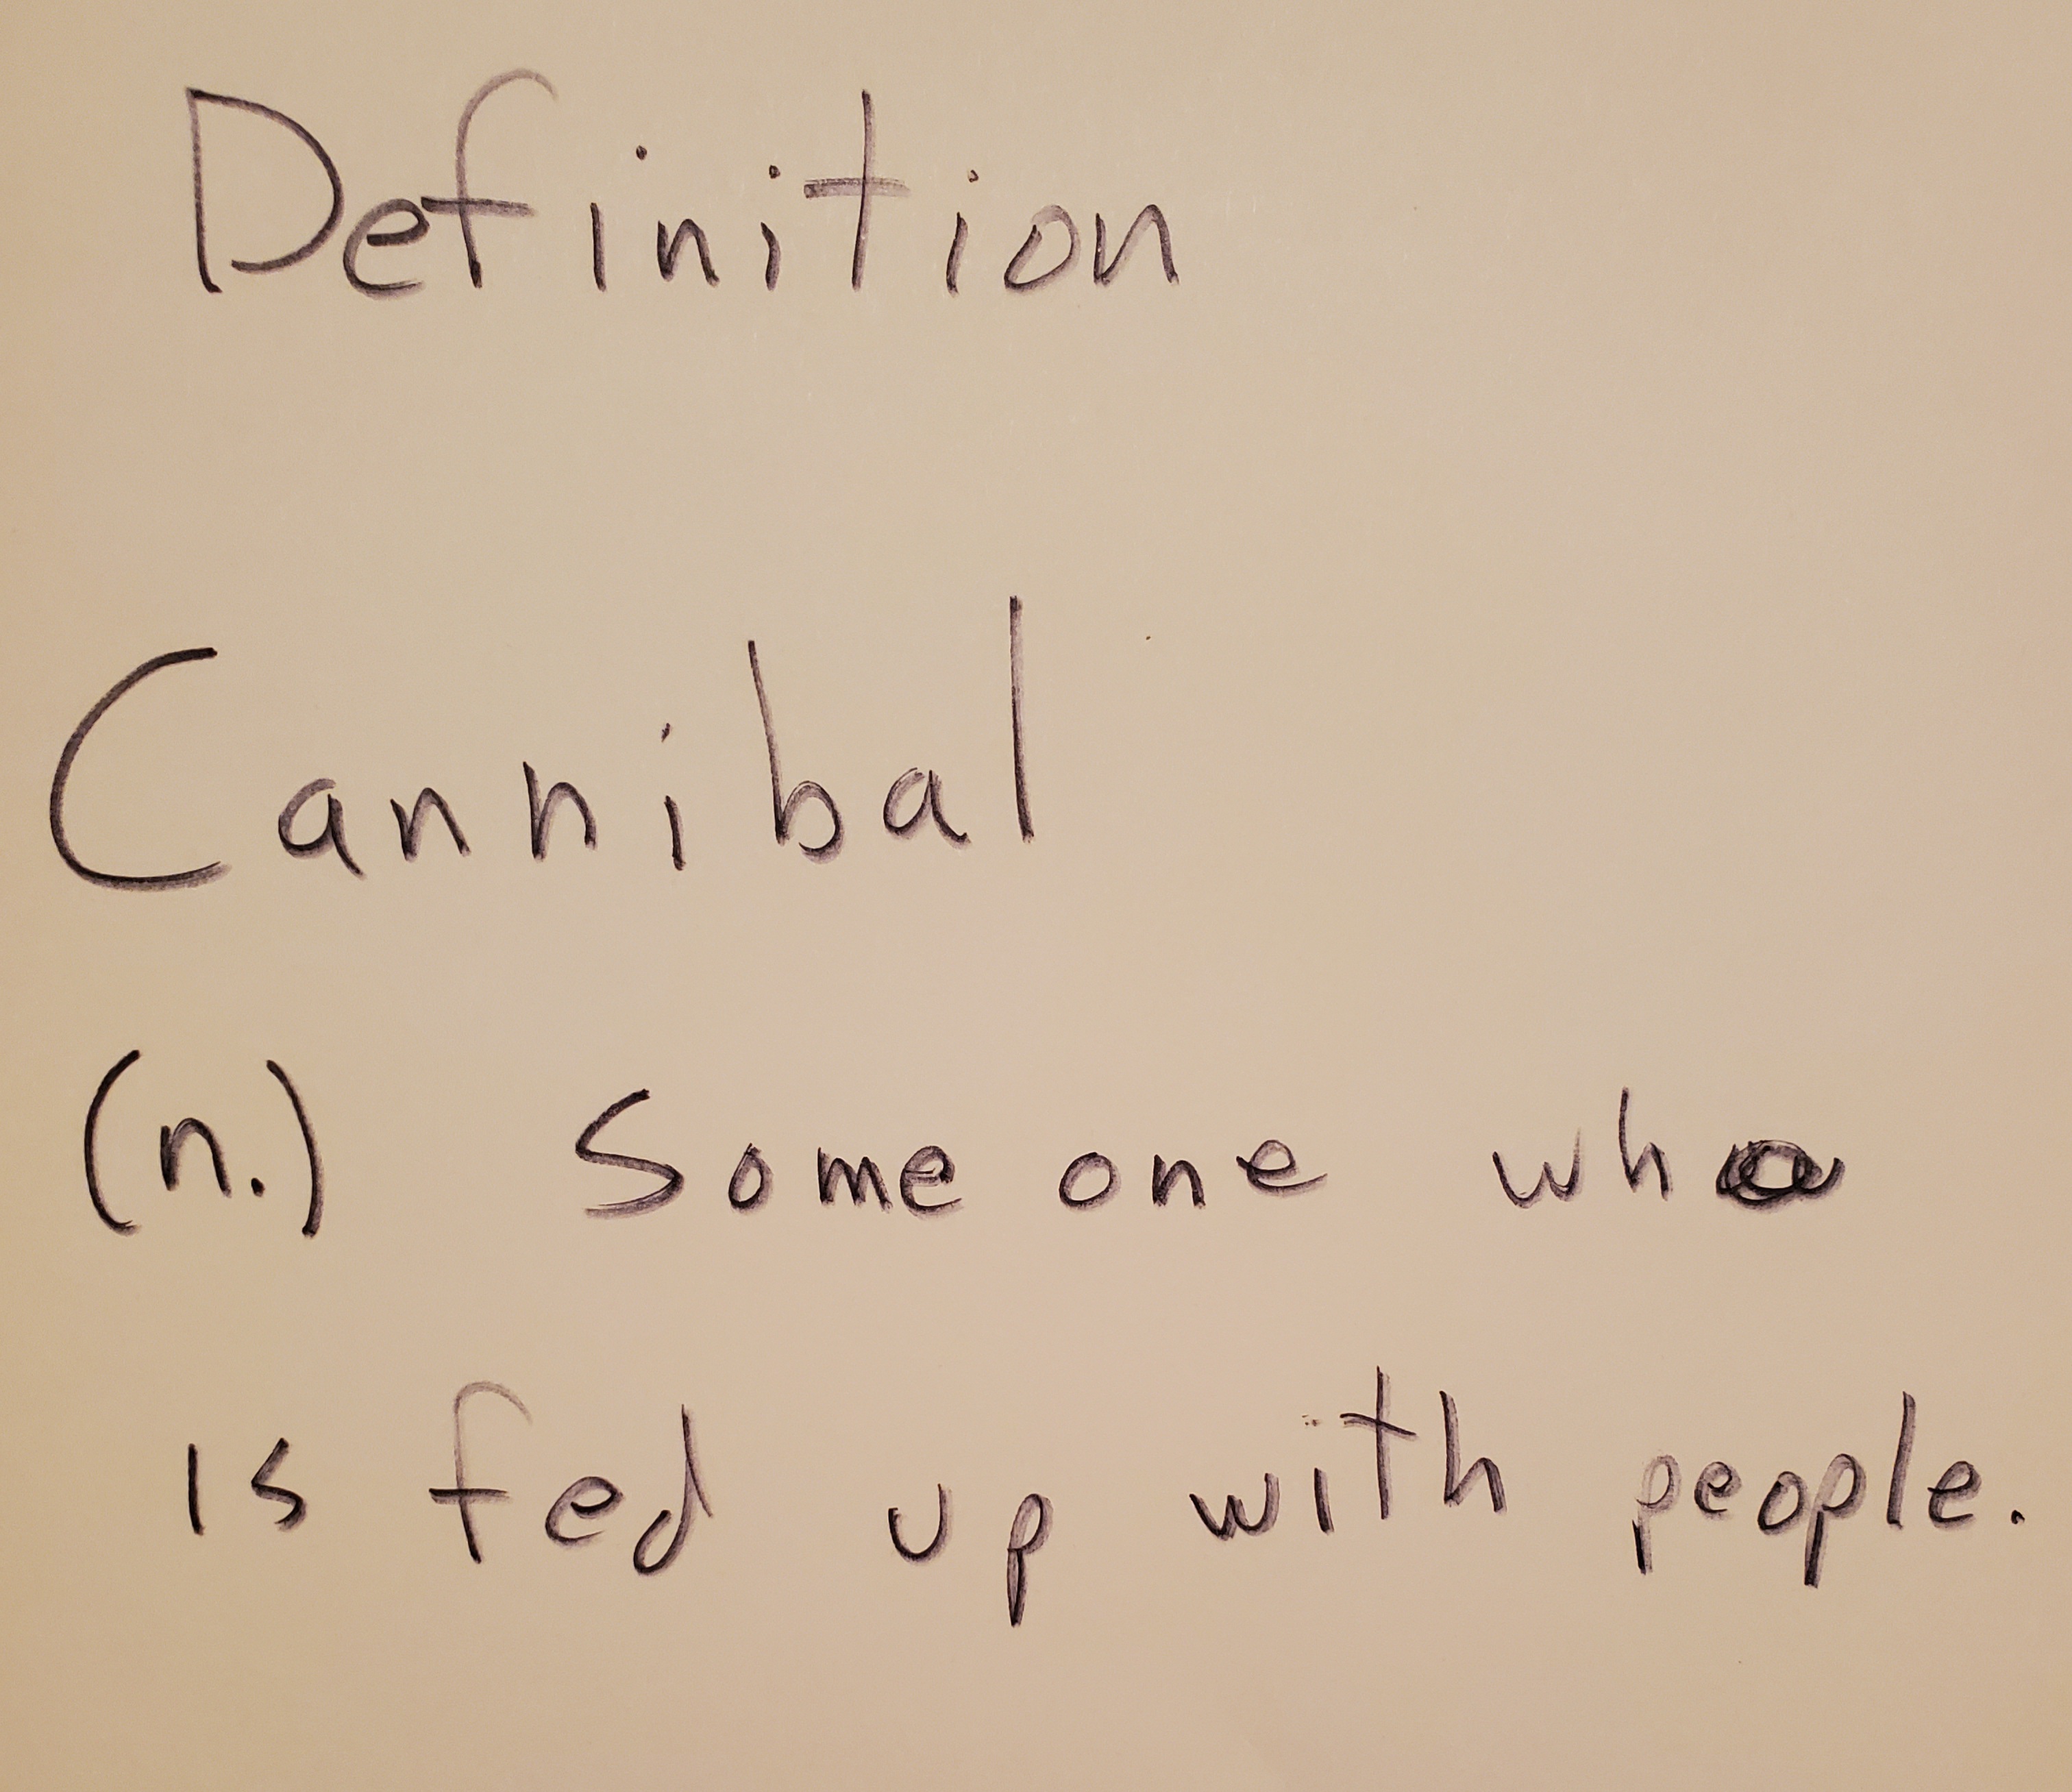 Definition
Cannibal
(n.) Some one who
is fed up with people.